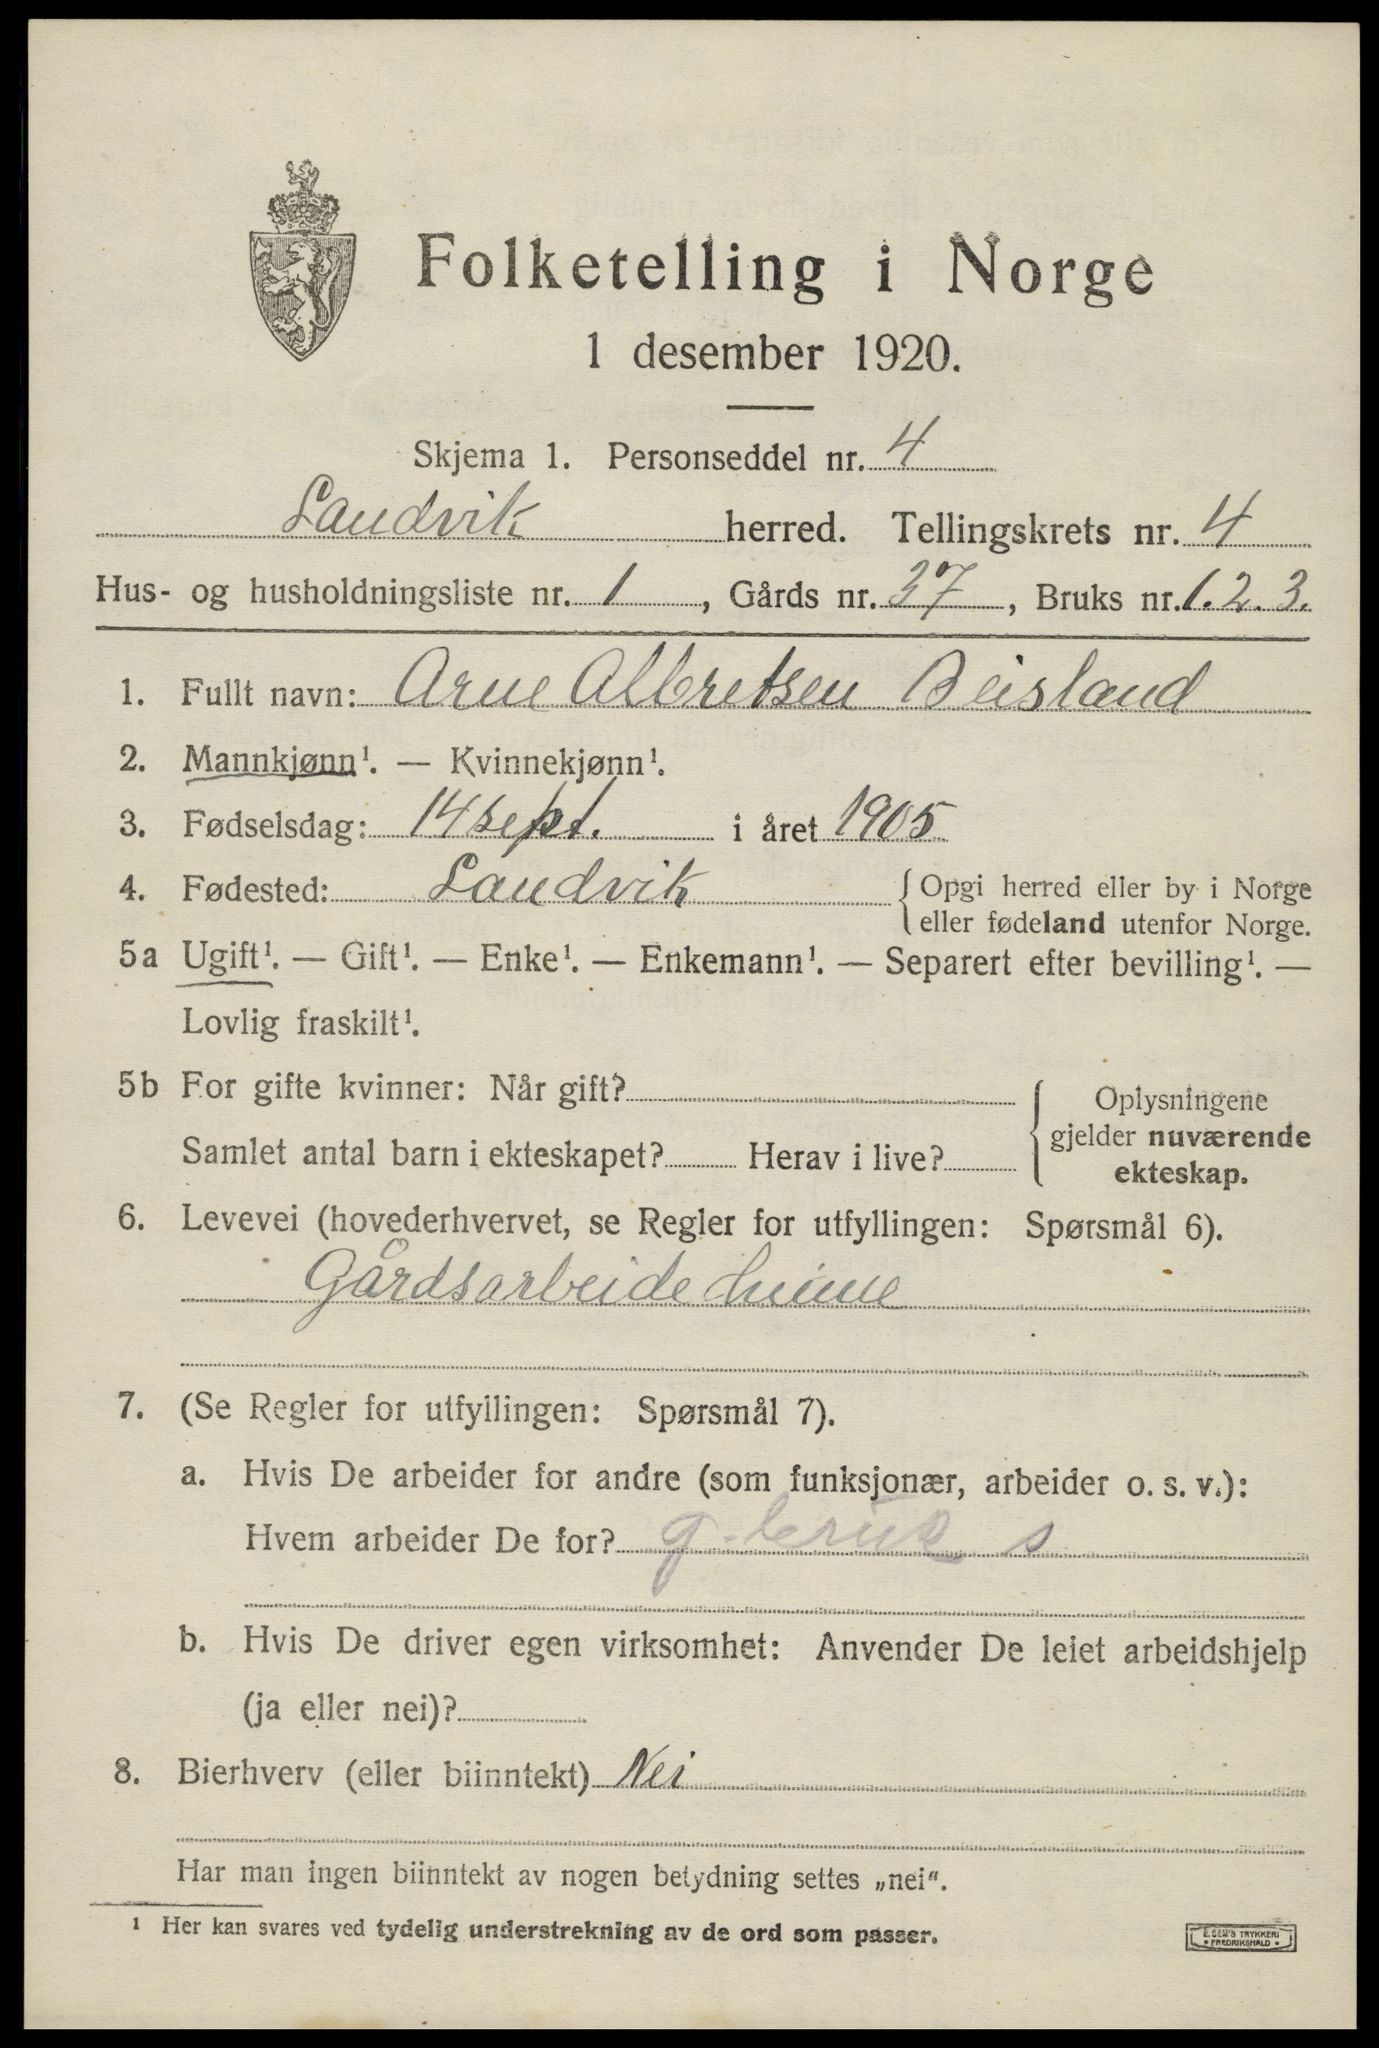 Folketelling i Norge
1 desember 1920.
Skjema 1. Personseddel nr. 4
Landvik herred. Tellingskrets nr. 4
Hus- og husholdningsliste nr. 1, Gårds nr. 37, Bruks nr. 1. 2. 3.
1. Fullt navn: Arne Albretsen Beisland
2. Mannkjønn¹. — Kvinnekjønn¹.
3. Fødselsdag: 14 sept. i året 1905
4. Fødested: Landvik { Opgi herred eller by i Norge
eller fødeland utenfor Norge.
5a Ugift¹. — Gift¹. — Enke¹. — Enkemann¹. — Separert efter bevilling¹. —
Lovlig fraskilt¹.
5b For gifte kvinner: Når gift? { Oplysningene
gjelder nuværende
Samlet antal barn i ekteskapet? Herav i live?
ekteskap.
6. Levevei (hovederhvervet, se Regler for utfyllingen: Spørsmål 6).
Gårdsarbeide hjemme
7. (Se Regler for utfyllingen: Spørsmål 7).
a. Hvis De arbeider for andre (som funksjonær, arbeider o. s. v.):
Hvem arbeider De for? g.bruk s
b. Hvis De driver egen virksomhet: Anvender De leiet arbeidshjelp
(ja eller nei)?
8. Bierhverv (eller biinntekt) Nei
Har man ingen biinntekt av nogen betydning settes „nei“.
¹ Her kan svares ved tydelig understrekning av de ord som passer.
E. SEM'S TRYKKERI
• FREDRIKSHALD •